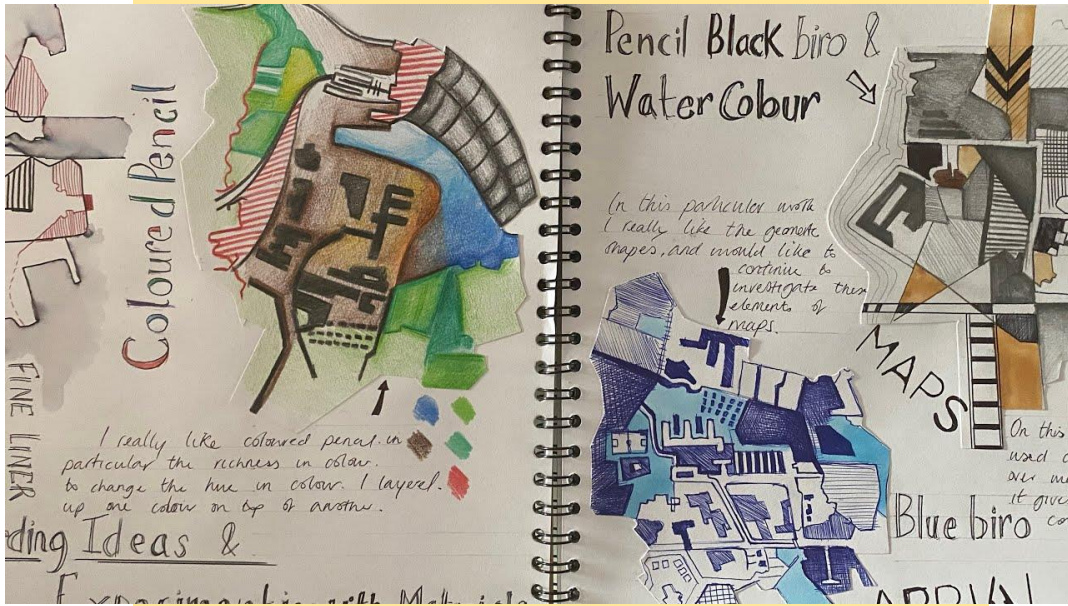 Coloured Pencil
FINE LINER
I really like coloured pencil. in
particular the richness in colour.
to change the hue in colour. I layered.
up one colour on top of another.
ding Ideas &
Experimenting with Materials
Pencil Black biro &
Water Colour
In this particular work
I really like the geometric
shapes, and would like to
continue to
investigate these
elements of
maps.
MAPS
On this
used
over
it give
Blue biro